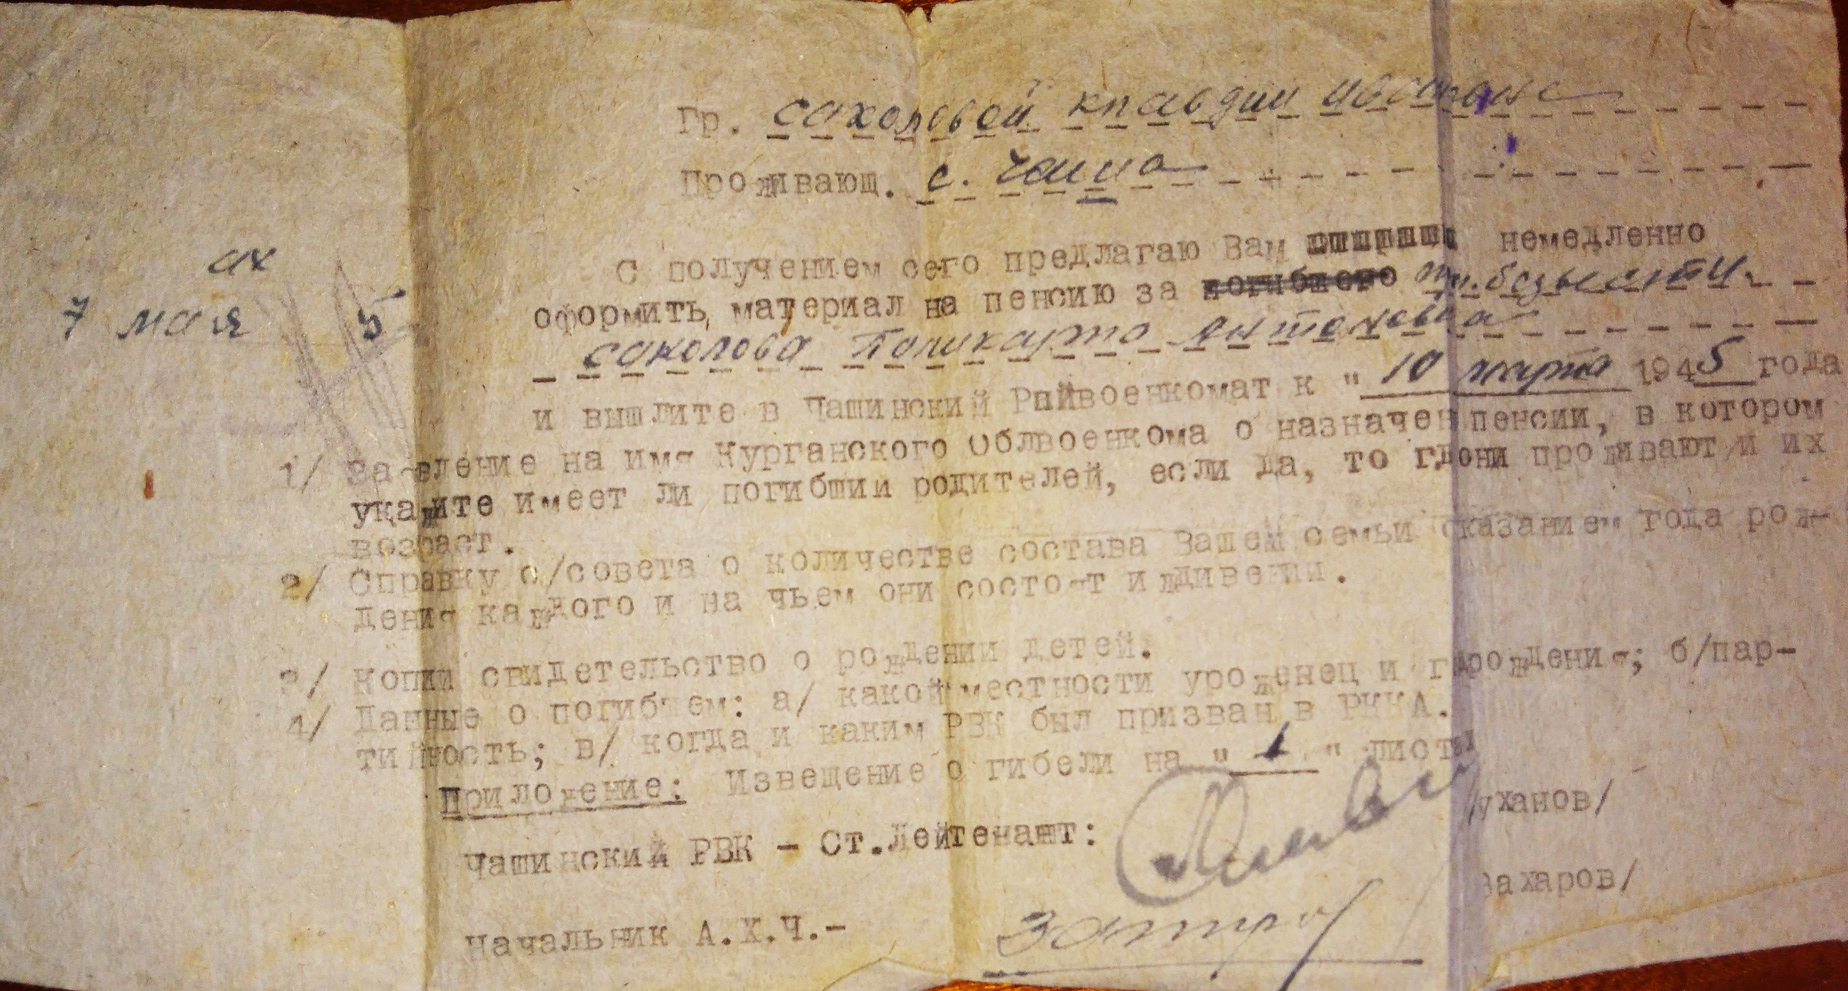 Гр. Соколовой Клавдии Ивановне
Проживающ. с. Чаша
С получением сего предлагаю Вам немедленно
ах
7 мая 5
оформить, материал на пенсию за погибшего пр. безвести
Соколова Поликарпа Антоновича
и вышлите в Чашинский Райвоенкомат к " 10 марта 1945 года
1/ Заявление на имя Курганского Облвоенкома о назначен пенсии, в котором
укажите имеет ли погибший родителей, если да, то где они проживают и их
возраст.
2/ Справку с/совета о количестве состава Вашей семьи сказанием года рож-
дения каждого и на чьем они состоят иждивении.
3/ Копии свидетельство о рождении детей.
4/ Данные о погибшем: а/ какой местности уроженец и г рождения; б/пар-
тийность; в/ когда и каким РВК был призван в РККА.
Приложение: Извещение о гибели на " 1 " листы
Чашинский РВК - Ст.Лейтенант: уханов/
Начальник А.Х.Ч.- Захаров/